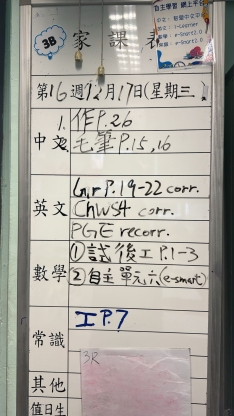 自主學習 網上平台
3B
家課表
第16週12月17日(星期三)
中文
1. 作P.26
2. 毛筆P.15,16
英文
Gr P.19-22 corr.
ChWS4 corr.
PGE recorr.
數學
①試後工P.1-3
②自主單元六(e-smart)
常識
工P.7
其他
3R
值日生